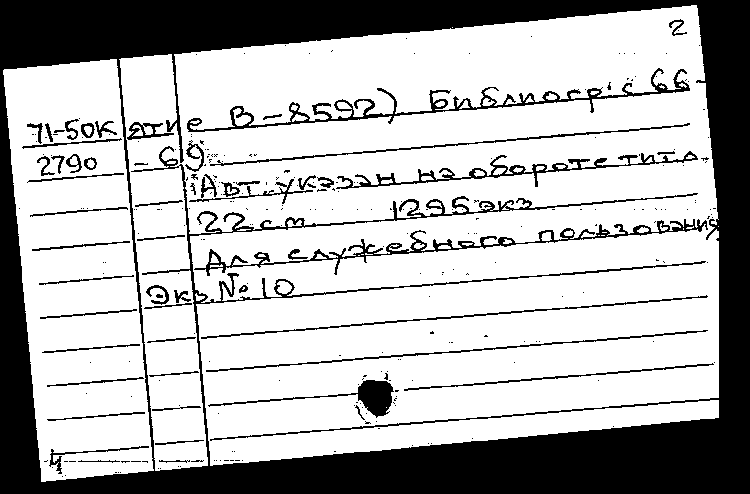 2
71-50К ятие В-8592) Библиогр: с 66-
2790 -69.
Авт. указан на обороте титл.
22 см. 1295 экз
Для служебного пользования
Экз. № 10
4